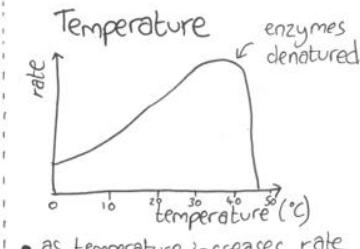 Temperature
enzymes
denatured
rate
0 10 20 30 40 50
temperature (°C)
• as temperature increases rate